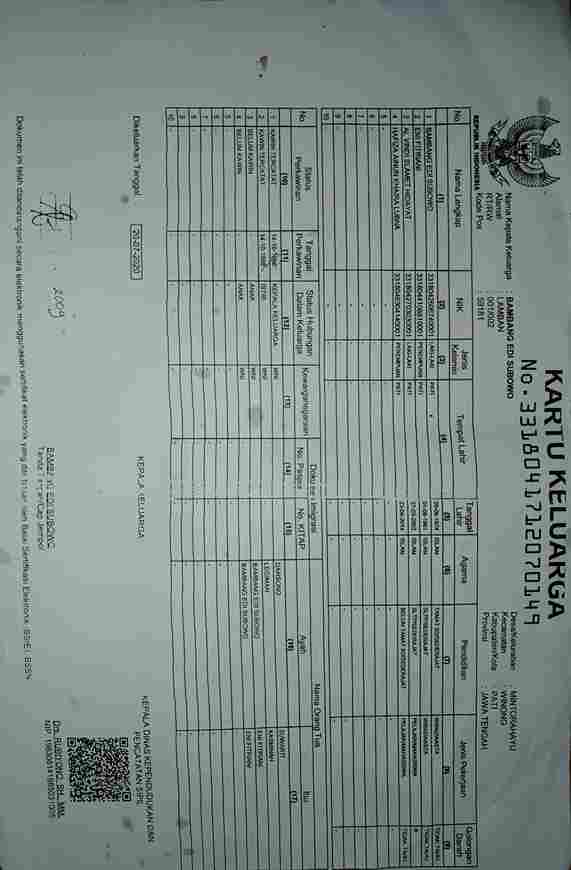 KARTU KELUARGA
No. 3318041712070149
REPUBLIK INDONESIA
Nama Kepala Keluarga : BAMBANG EDI SUBOWO
Alamat : LAMBAN
RT/RW : 001/002
Kode Pos : 59181
Desa/Kelurahan : MINTORAHAYU
Kecamatan : WINONG
Kabupaten/Kota : PATI
Provinsi : JAWA TENGAH
No Nama Lengkap NIK Jenis Kelamin Tempat Lahir Tanggal Lahir Agama Pendidikan Jenis Pekerjaan Golongan Darah
(1) (2) (3) (4) (5) (6) (7) (8) (9)
1 BAMBANG EDI SUBOWO LAKI-LAKI PATI ISLAM TAMAT SD/SEDERAJAT WIRASWASTA TIDAK TAHU
2 ENI FITRIANI PEREMPUAN PATI ISLAM SLTP/SEDERAJAT WIRASWASTA TIDAK TAHU
3 SLAMET HIDAYAT LAKI-LAKI PATI ISLAM SLTP/SEDERAJAT PELAJAR/MAHASISWA
4 PEREMPUAN PATI ISLAM BELUM TAMAT SD/SEDERAJAT PELAJAR/MAHASISWA TIDAK TAHU
5
6
7
8
9
10
No Status Perkawinan Tanggal Perkawinan Status Hubungan Dalam Keluarga Kewarganegaraan Dokumen Imigrasi Nama Orang Tua
No. Paspor No. KITAP Ayah Ibu
(10) (11) (12) (13) (14) (15) (16) (17)
1 KAWIN TERCATAT KEPALA KELUARGA WNI DARSONO SUWARTI
2 KAWIN TERCATAT ISTRI WNI LEGIMAN KASMINAH
3 BELUM KAWIN ANAK WNI BAMBANG EDI SUBOWO ENI FITRIANI
4 BELUM KAWIN ANAK WNI BAMBANG EDI SUBOWO ENI FITRIANI
5
6
7
8
9
10
Dikeluarkan Tanggal : 20-07-2020
KEPALA KELUARGA
KEPALA DINAS KEPENDUDUKAN DAN
PENCATATAN SIPIL
2009
BAMBANG EDI SUBOWO
Tanda Tangan/Cap Jempol
Drs. RUBIYONO, SH., MM.
NIP.
Dokumen ini telah ditandatangani secara elektronik menggunakan sertifikat elektronik yang diterbitkan oleh Balai Sertifikasi Elektronik (BSrE), BSSN